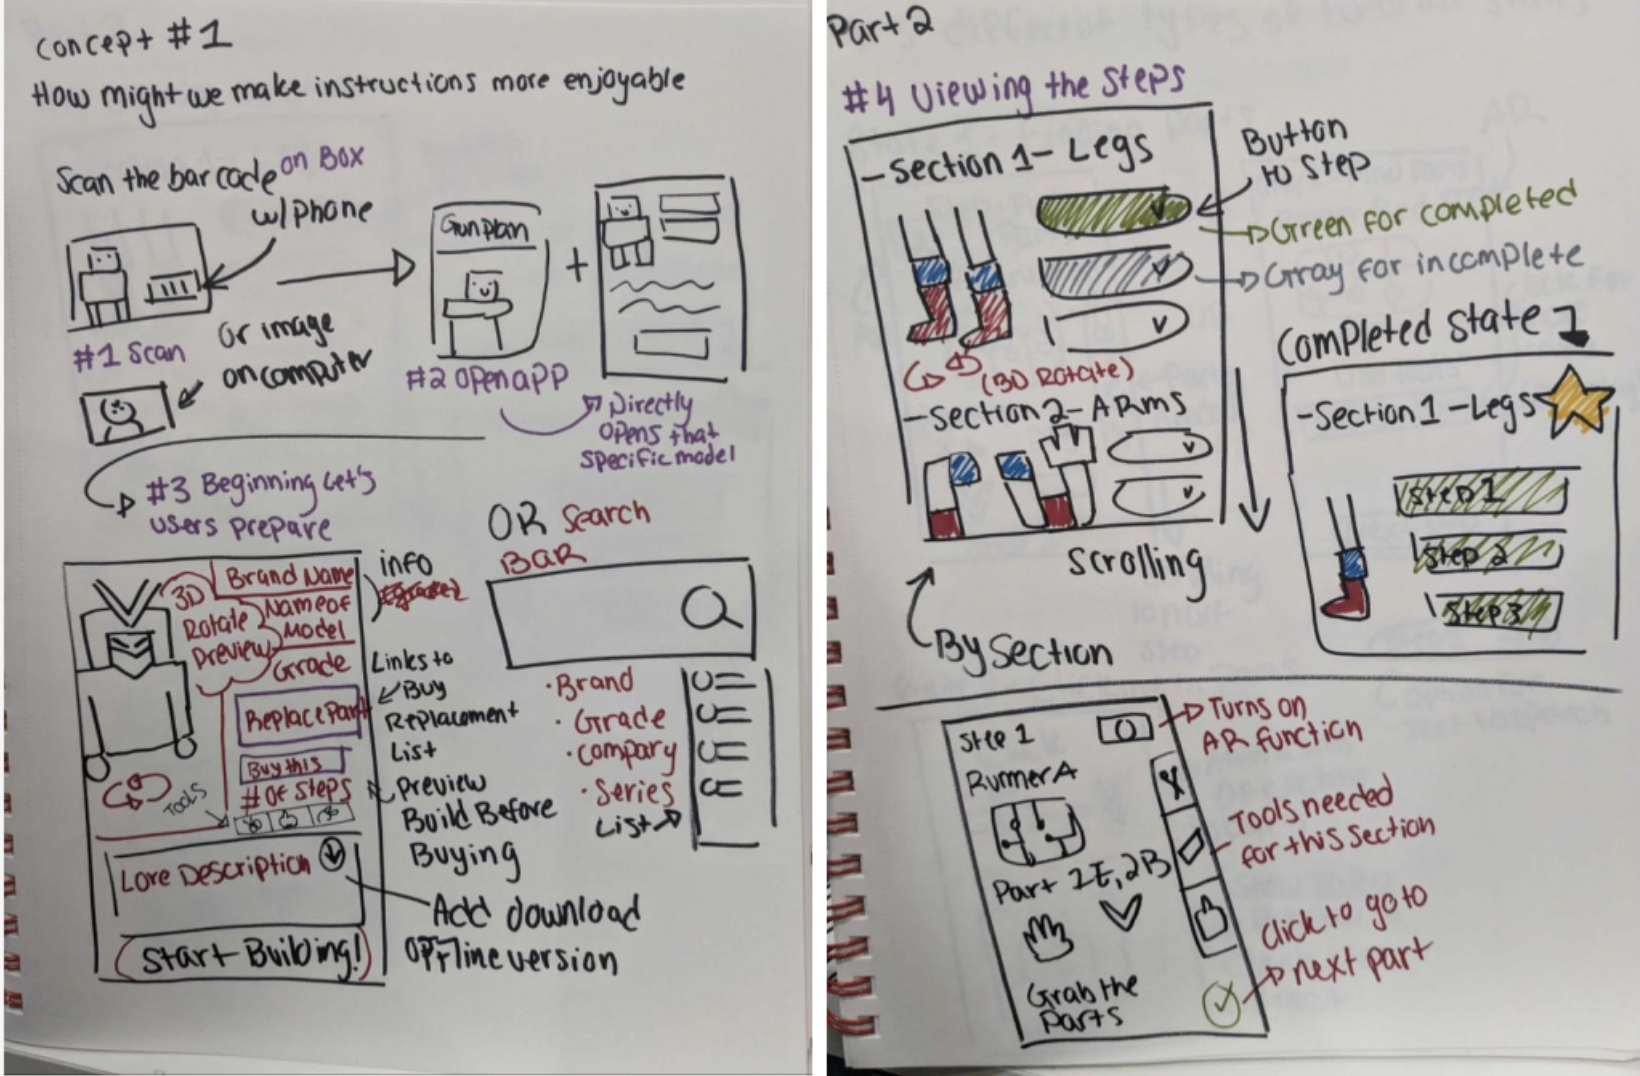 Concept #1
How might we make instructions more enjoyable
Scan the barcode on Box
w/ phone
#1 Scan
or image
on computer
Gunplan
+
#2 open app
Directly
opens that
specific model
#3 Beginning Let's
users prepare
3D
Rotate
Preview
Brand Name
Name of
Model
Grade
info
Replace Part
Buy this
# of steps
Tools
Links to
Buy
Replacement
List
Preview
Build Before
Buying
Lore Description
Add download
offline version
Start Building!
OR Search
BaR
·Brand
·Grade
·company
·Series
List
Part 2
#4 Viewing the Steps
-Section 1- Legs
Button
to step
Green for completed
Gray for incomplete
(3D Rotate)
-Section 2- ARms
Scrolling
By Section
Completed State
-Section 1 -Legs
Step 1
Step 2
Step 3
Step 1
Runner A
Part 1E, 2B
Grab the
Parts
Turns on
AR function
Tools needed
for this section
click to go to
next part